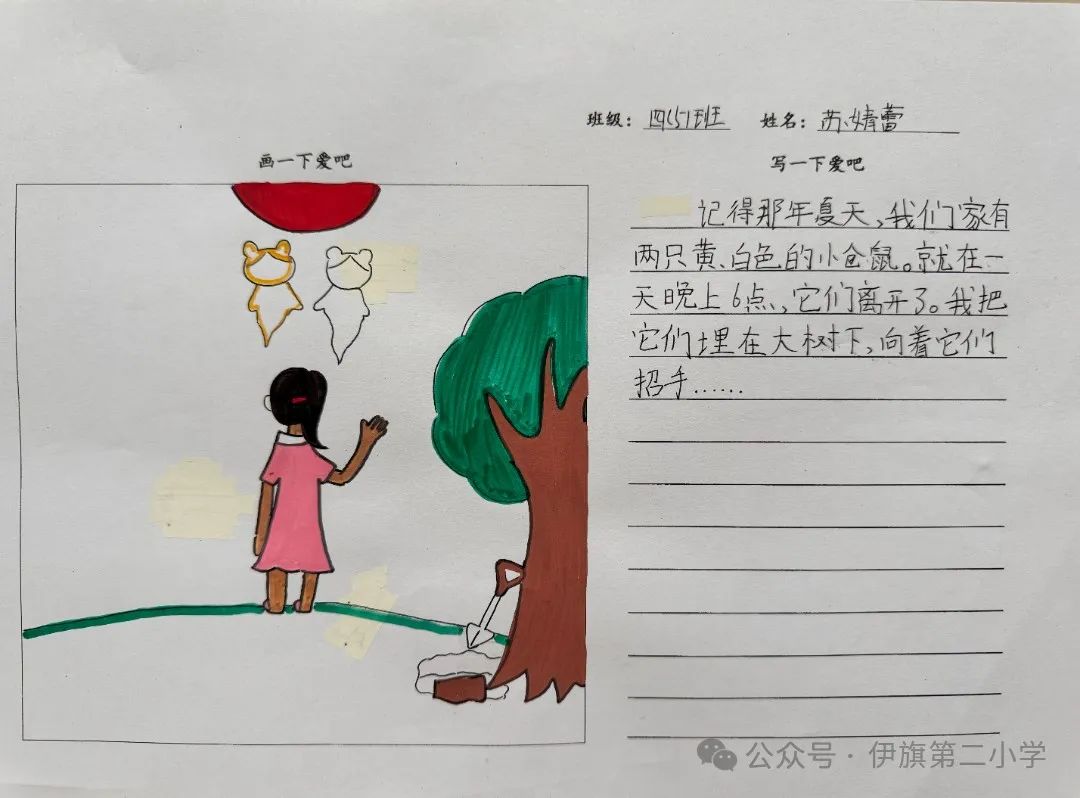 班级：四(5)班 姓名：苏婧蕾
画一下爱吧
写一下爱吧
记得那年夏天,我们家有
两只黄、白色的小仓鼠。就在一
天晚上6点、,它们离开了。我把
它们埋在大树下,向着它们
招手……
公众号·伊旗第二小学